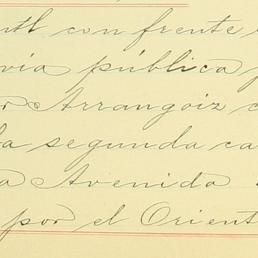 con frente
vía pública
Arrangoiz
la segunda
Avenida
por el Orient